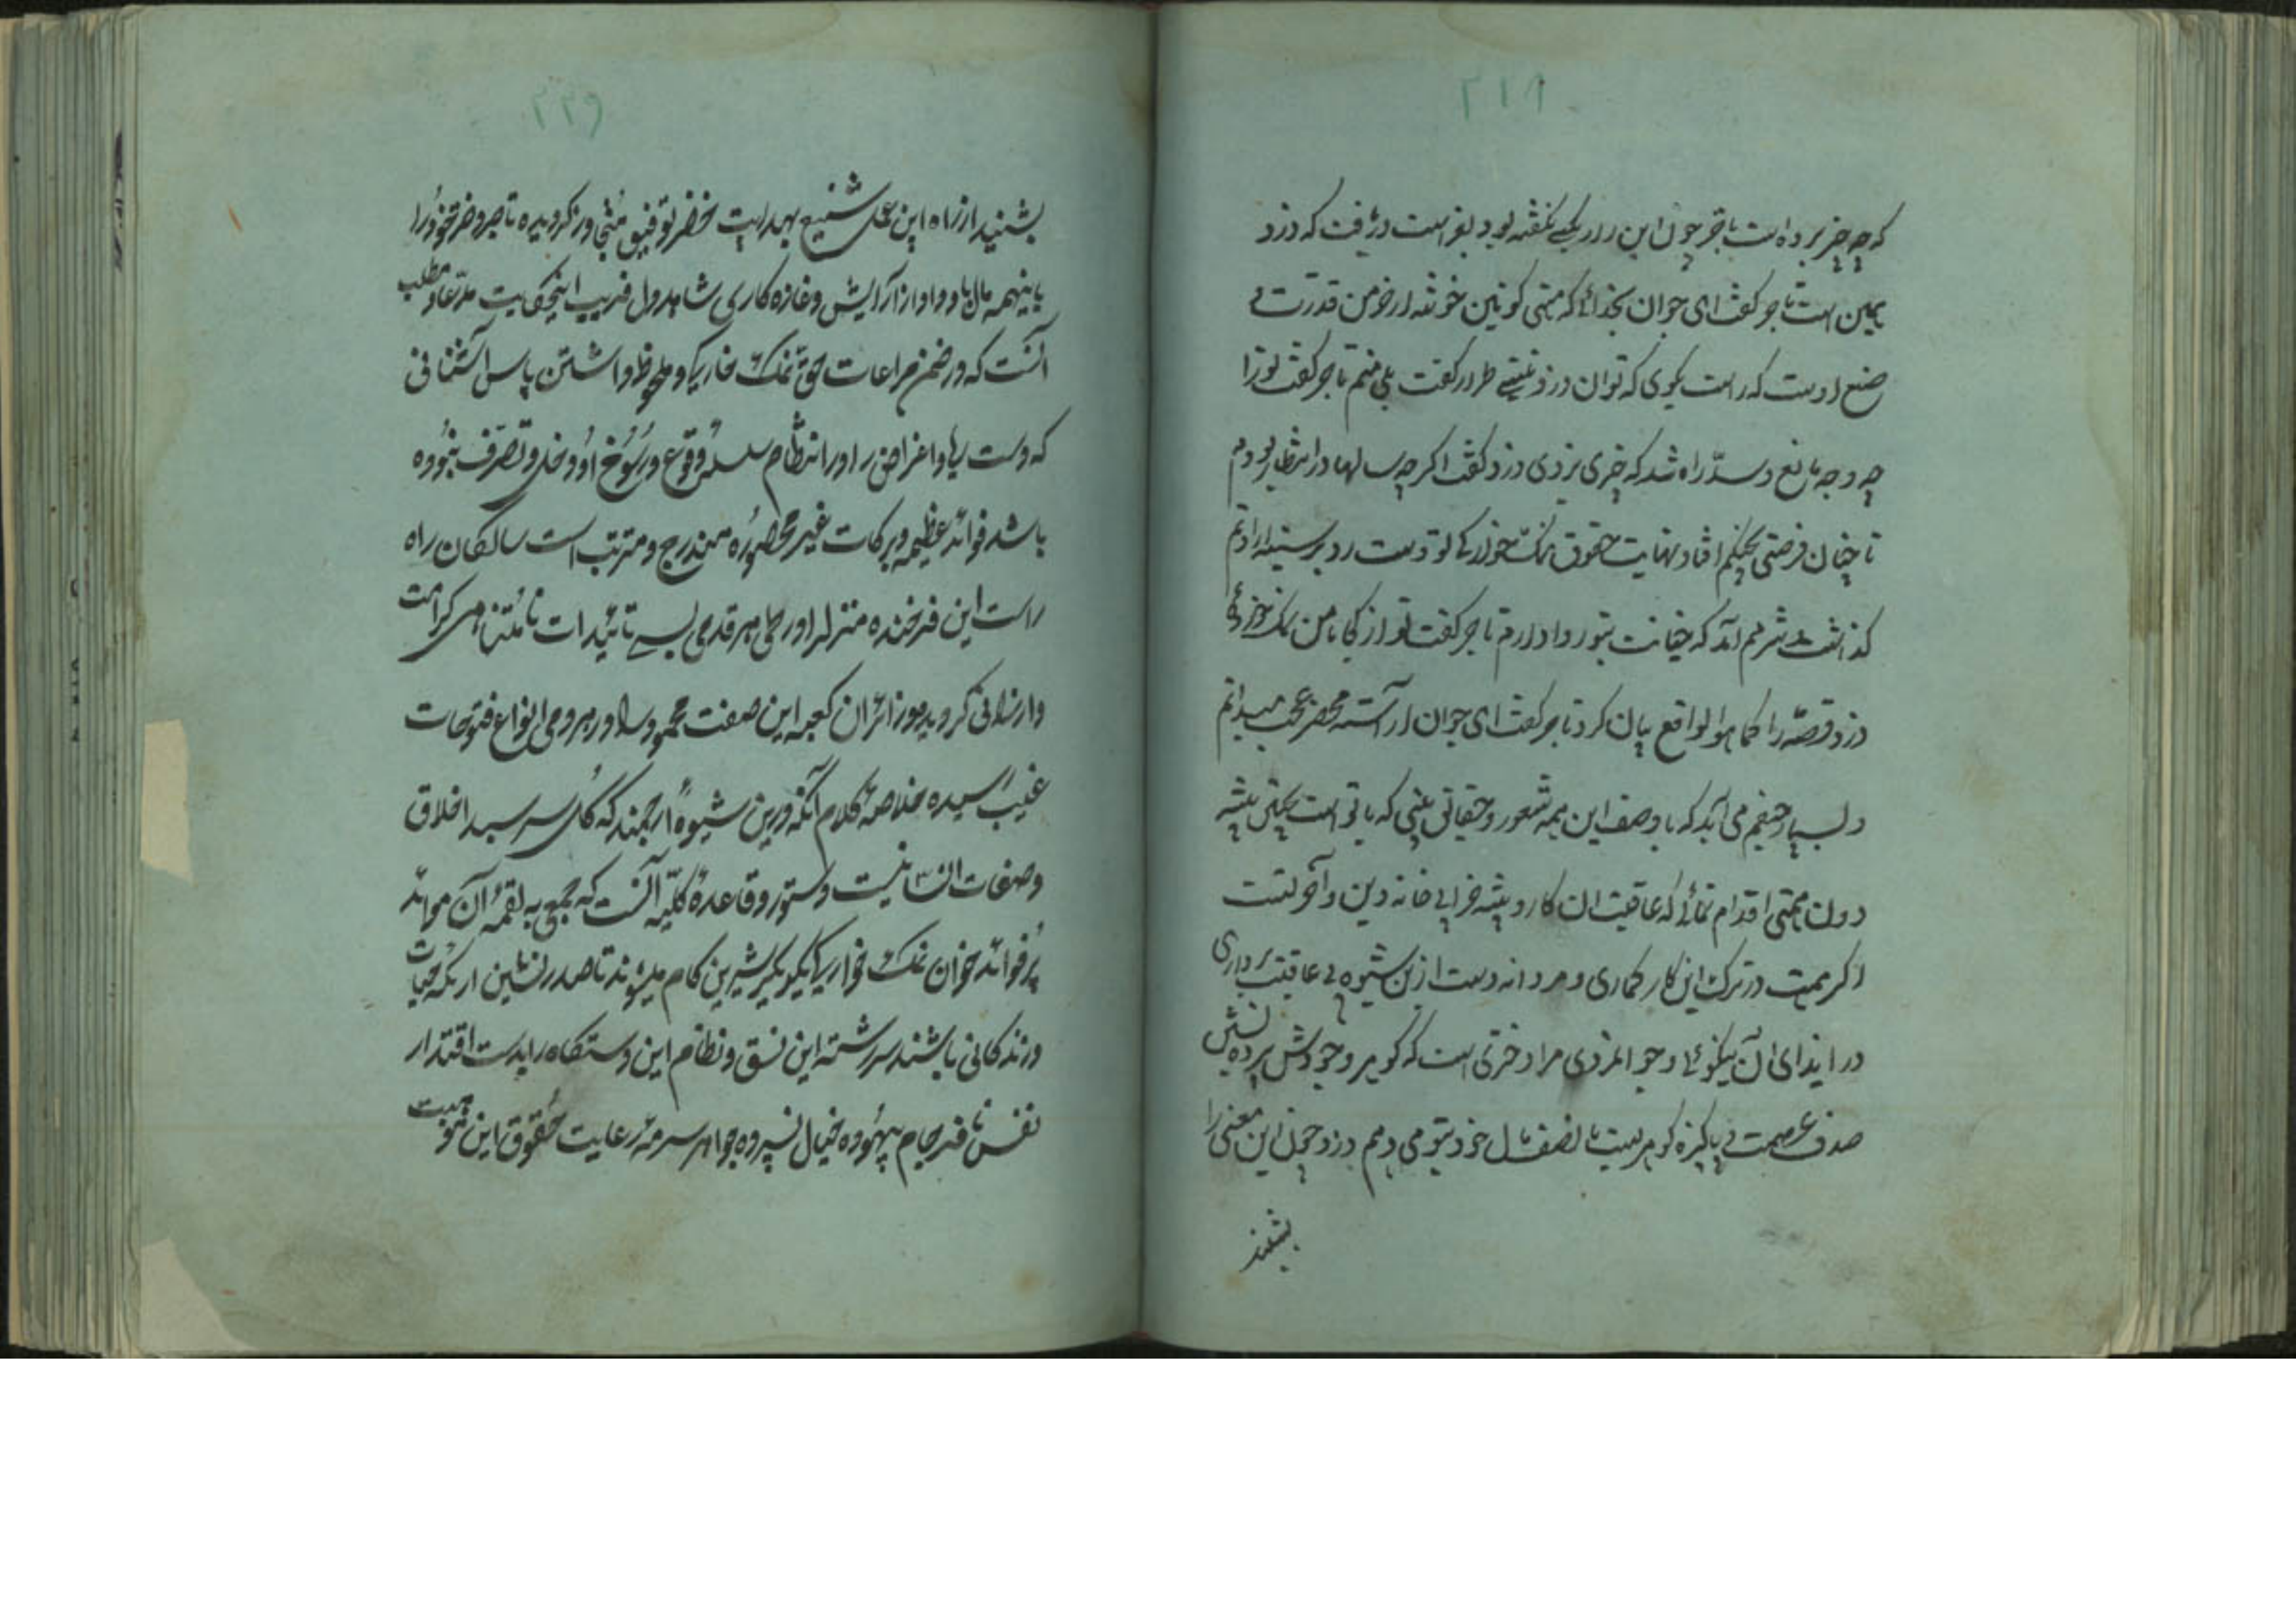 ۲۱۹
که چه چیز برده است تاجر چون این راز بکسی نگفته بود بفراست دریافت که دزد
همین است تاجر گفت ای جوان بخدائی که هستی کونین خوشه از خرمن قدرت
صنع اوست که راست بگوی که توان دزد نیستی طرار گفت بلی منم تاجر گفت ترا
چه وجه مانع و سدّ راه شد که چیزی نبردی دزد گفت اگرچه سالها در انتظار بودم
تا چنان فرصتی بچنگم افتاد نهایت حقوق نمک خوارگی تو دست رد بر سینه ارادتم
گذاشت شرمم آمد که خیانت بتو روا دارم تاجر گفت تو از کجا با من نمک خورده
دزد قصّه را کما هو الواقع بیان کرد تاجر گفت ای جوان آراسته محضر عجب میدانم
و بسیار حیفم می آید که با وصف این همه شعور و حقانی بینی که با تو است بچنین پیشه
دون همتی اقدام نمائی که عاقبت آن کار و پیشه خرابی خانه دین و آخرتست
اگر همت در ترک این کار گماری و مردانه دست ازین شیوه بی عاقبت برداری
در ازای آن نیکوئی و جوانمردی مرا دختری است که گوهر وجودش پرده نشین
صدف عصمت و پاکیزه گوهریست با نصف مال خود بتو می دهم دزد چون این معنی را
بشنید
۲۲۹
بشنید از راه این عمل شنیع بهدایت خضر توفیق متجاوز گردیده تاجر دختر خود را
با نیمه مال باو داد از آرایش و غازه کاری شاهد دل فریب این حکایت مدّعا و مطلب
آنست که در ضمن مراعات حق نمک خوارگی و ملحوظ داشتن پاس آشنائی
که دست ریا و اغراض را در انتظام سلسله وقوع و رسوخ او دخل و تصرّف نبوده
باشد فوائد عظیمه و برکات غیر محصوره مندرج و مترتب است سالکان راه
راست این فرخنده منزل را در طی هر قدمی بسی تائیدات نامتناهی کرامت
و ارزانی گردیده و زائران کعبه این صفت محمود را در هر دمی انواع فتوحات
غیب رسیده خلاصهٔ کلام آنکه درین شیوهٔ ارجمند که گل سر سبد اخلاق
و صفات انسانیت و دستور و قاعدهٔ کلّیه آنست که جمعی به لقمهٔ آن موائد
پُر فوائد خوان نمک خوارگی یکدیگر شیرین کام میشوند تا صدر نشین اریکه حیات
و زندگانی باشند سررشته این نسق و نظام این دستگاه را بدست اقتدار
نفس نافرجام بیهوده خیال نسپرده جواهر سرمهٔ رعایت حقوق این